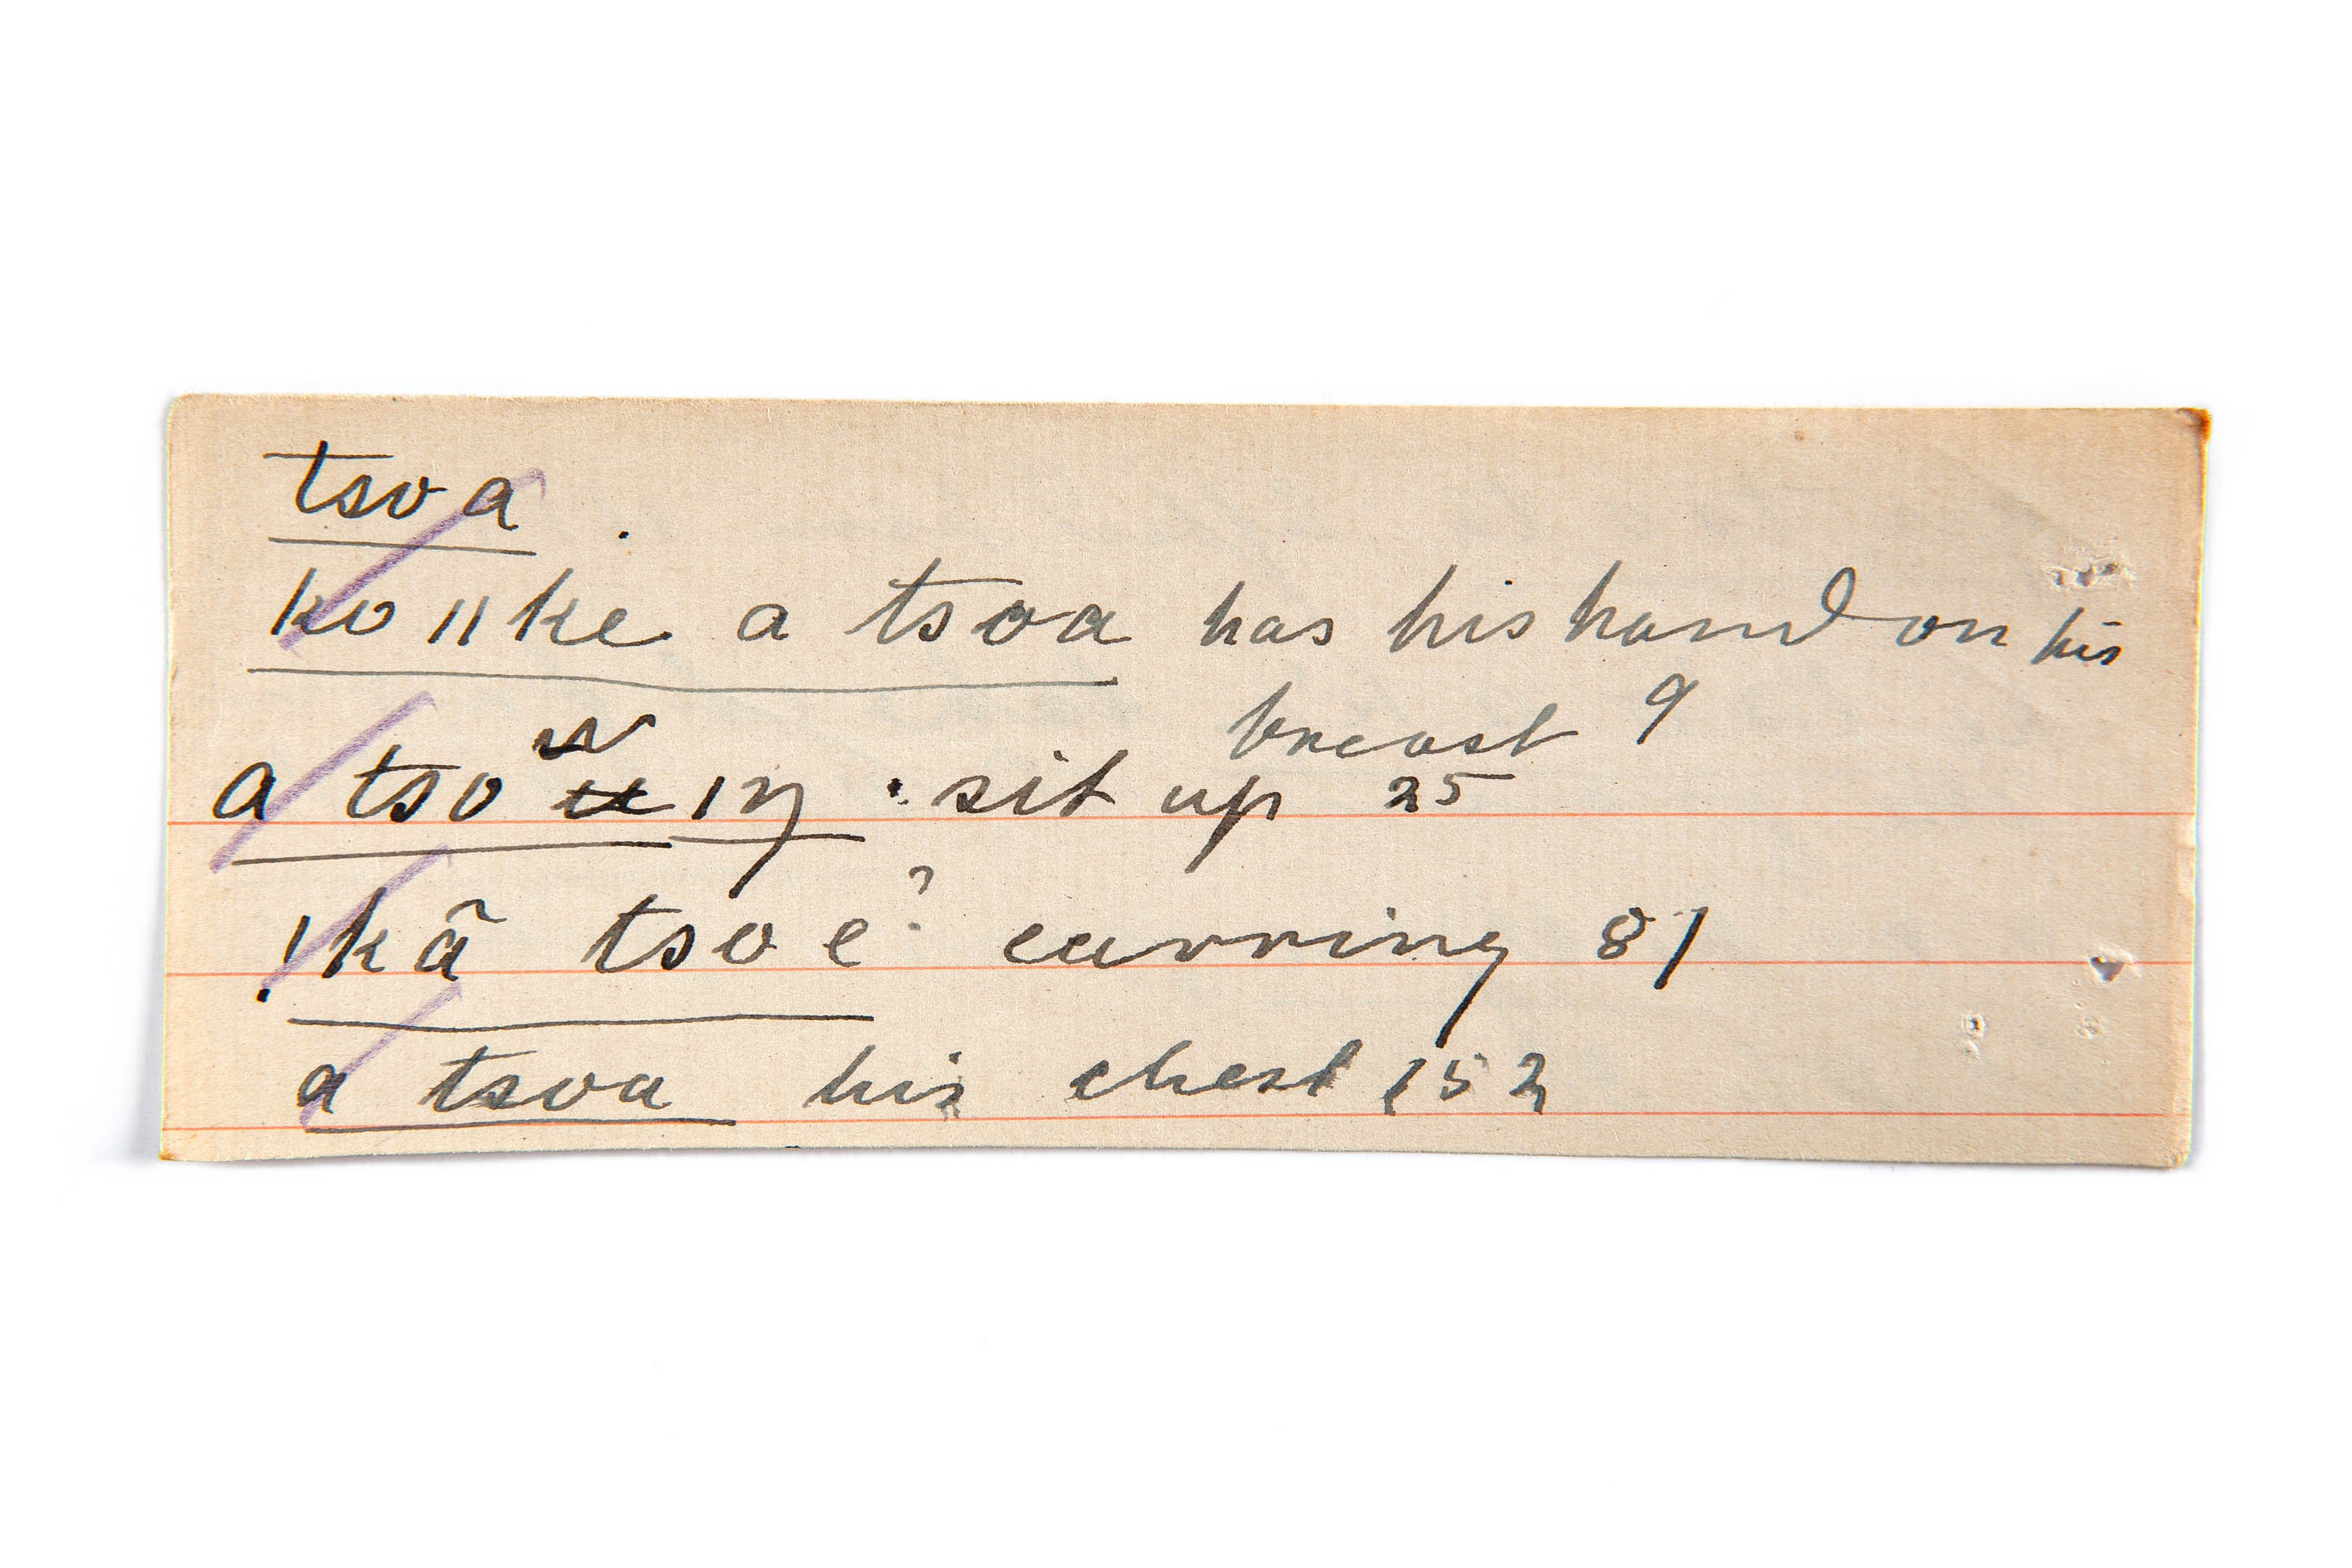 tsoa
ko ǁke a tsoa has his hand on his
breast 9
a tso w ıŋ : sit up 25
!kã tsoe ? earring 81
a tsoa his chest 152